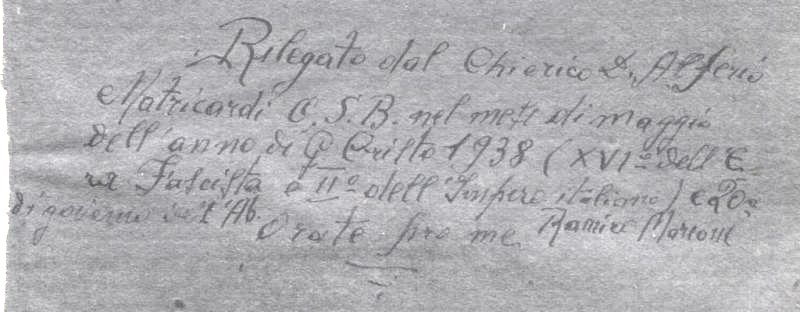 Rilegato dal Chierico D. Alferio
Matricardi O. S. B. nel mese di maggio
dell'anno di G Cristo 1938 (XVIº dell'E
ra Fascista e IIº dell'Impero italiano) e 20º
di governo dell'Ab. Ramiro Marcone
Orate pro me